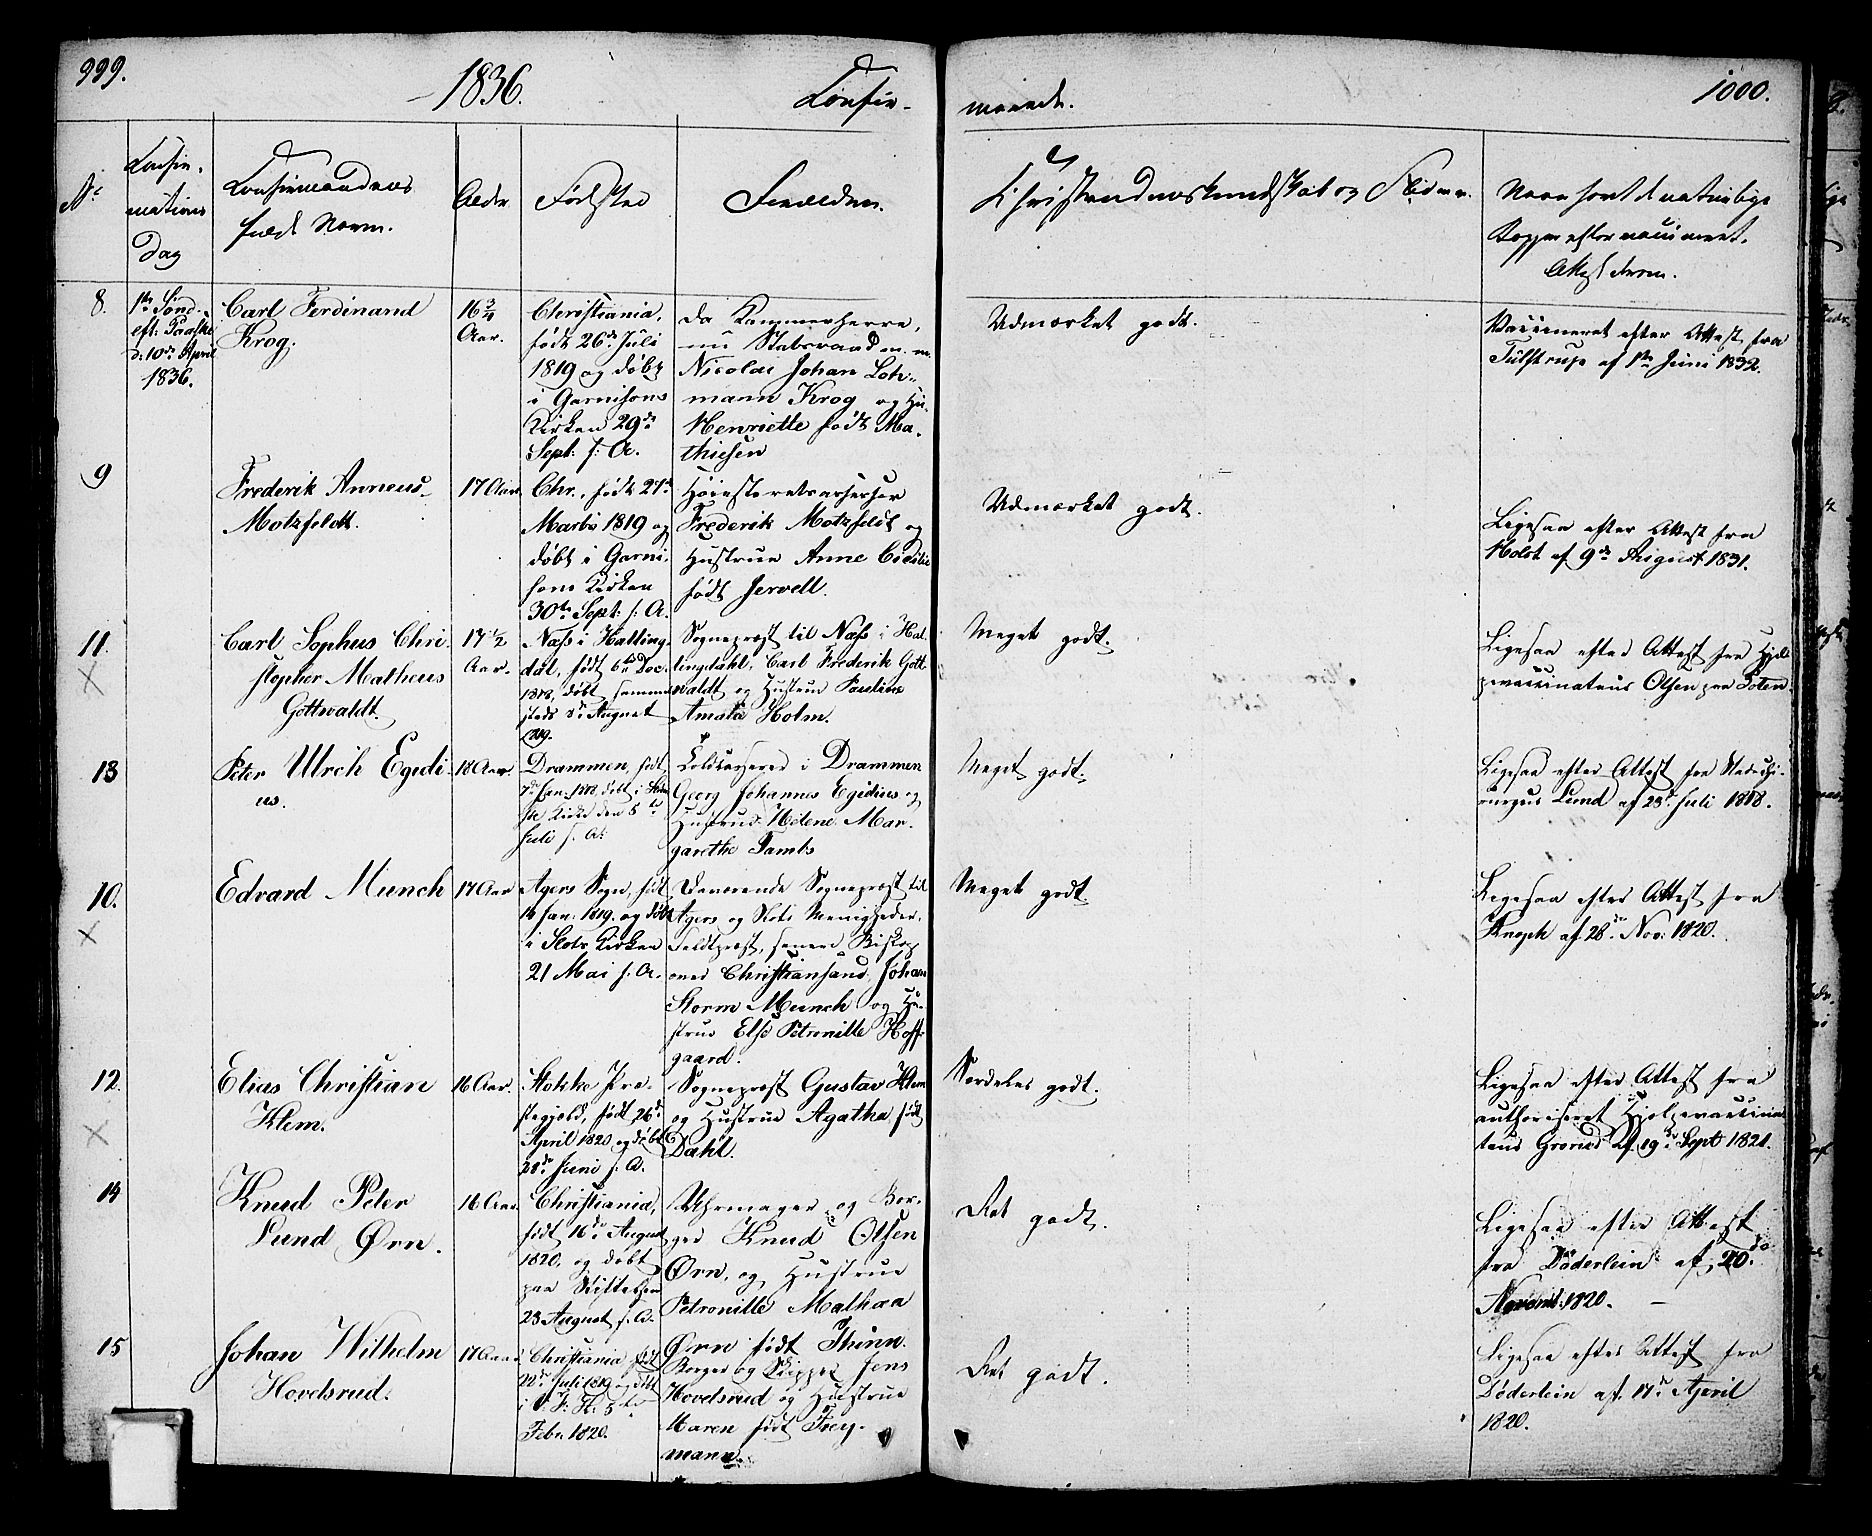 999.
1836.
Confir-
merede.
1000.
No
Confir-
mations
Dag
Confirmandens
fulde Navn.
Alder
Fødested
Forældre.
Christendomskundskab og Flid m.m.
Naar havt de naturlige
Kopper eller vaccineret.
Attest derom.
8.
1ste Sønd.
eft: Paaske
d: 10de April
1836.
Carl Ferdinand
Krog.
16 3/4
Aar.
Christiania,
født 26de Juli
1819 og døbt
i Garnisons
Kirken 29de
Sept: s: A.
da Kammerherre,
nu Statsraad m. m.
Nicolai Johan Loh-
mann Krog og Hu.
Henriette født Ma-
thiesen
Udmærket godt.
Vaccineret efter Attest fra
Tulstrup af 1ste Juni 1832.
9
Frederik Anneus
Motzfeldt.
17 Aar
Chr., født 27de
Marts 1819 og
døbt i Garni-
sons Kirken
30te Sept: s: A.
Høiesteretsassessor
Frederik Motzfeldt og
Hustrue Anne Cicilie
født Jervell.
Udmærket godt.
Ligesaa efter Attest fra
Holst af 9de August 1831.
11.
X
Carl Sophus Chri-
stopher Matheus
Gottwaldt.
17 1/2
Aar.
Næss i Halling-
dal, født 6te Dec.
1818, døbt samme-
steds 8de August
1819.
Sognepræst til Næss i Hal-
lingdahl, Carl Frederik Gott-
waldt og Hustrue Pauline
Amalia Holm.
Meget godt.
Ligesaa efter Attest fra Hjelp-
vaccinateur Olsen paa Toten.
13
Peter Ulrich Egidi-
us.
18 Aar.
Drammen, født
Jan: 1818, døbt i
Kirke den 5te
Juli s. A.
Toldkasserer i Drammen
Georg Johannes Egidius og
Hustrue Helene Mar-
garethe Tambs
Meget godt.
Ligesaa efter Attest fra
Lund af 23de Juli 1818.
10.
X
Edvard Munch
17 Aar
Agers Sogn, født
Jan: 1819. og døbt
i Slots Kirken
21 Mai s: A.
Daværende Sognepræst til
Agers og Slots Menigheder,
Feldtpræst, senere Biskop
over Christiansand, Johan
Storm Munch og Hu-
strue Else Petronille Hoff-
gaard.
Meget godt
Ligesaa efter Attest fra
Knoph af 28de Nov: 1820.
12.
X
Elias Christian
Klem.
16 Aar.
Stokke Præ-
stegjeld, født 26de
April 1820 og døbt
28de Juni s. A.
Sognepræst Gustav Klem
og Hustrue Agatha født
Dahl.
Særdeles godt.
Ligesaa efter Attest fra
authoriseret Hjelpevaccina-
teur af 19de Sept 1821.
14
Knud Peter
Lund Ørn.
16 Aar.
Christiania,
født 16de August
1820, og døbt
paa Stiftelsen
23 August s. A.
Uhrmager og Bor-
ger Knud Olsen
Ørn, og Hustrue
Petronille Mathea
Ørn født Thinn.
Ret godt.
Ligesaa efter Attest
fra Døderlein af 20de
Novemb: 1820.
15
Johan Wilhelm
Hovelsrud.
17 Aar
Christiania født
22de Juli 1819 og døbt
i V: F: K: 5te
Febr. 1820.
Borger og Skipper Jens
Hovelsrud og Hustrue
Maren født Frey-
mann.
Ret godt.
Ligesaa efter Attest fra
Døderlein af 17de April
1820.